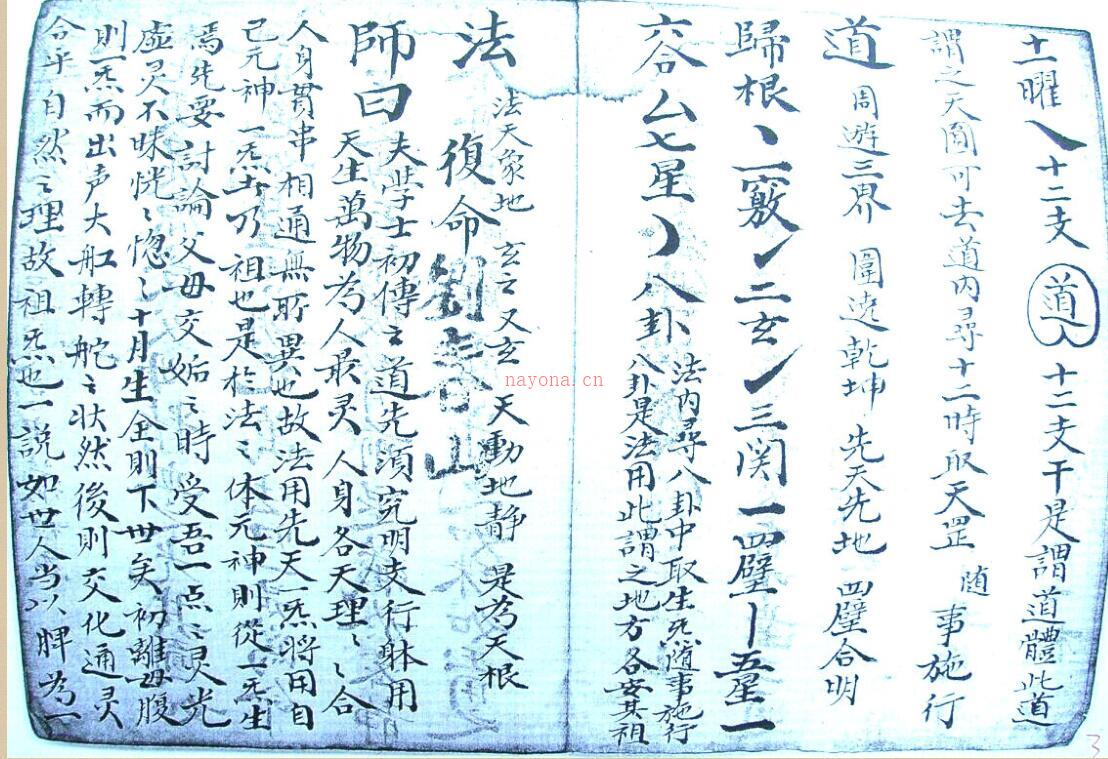 土曜乀十二支 道入 十二支干是謂道體此道
謂之天圓可去道内尋十二時取天罡 随事施行
道 周遊三界 圍遶乾坤 先天先地 四壁合明
歸根丶一竅丿二玄丿三関一四壁丨五星一
六合厶七星㇁八卦 法内尋八卦中取生炁随事施行
八卦是法用此謂之地方各安其祖
法 法天象地 玄之又玄 天動地静 是為天根
復命 劉 山
師曰 夫学士初傳之道先須究明支行躰用
天生萬物為人最灵人身各天理〻合
人身貫串相通無所異也故法用先天一炁將用自
己元神一炁者乃祖也是於法之体元神則從一炁生
焉先要討論父母交姤之時受吾一点之灵光
虚灵不昧恍〻惚〻十月生全則下世矣初離母腹
則一炁而出声大舡轉舵之状然後則交化通灵
合乎自然之理故祖炁也一説如世人当以脾為一
nayona.cn
3